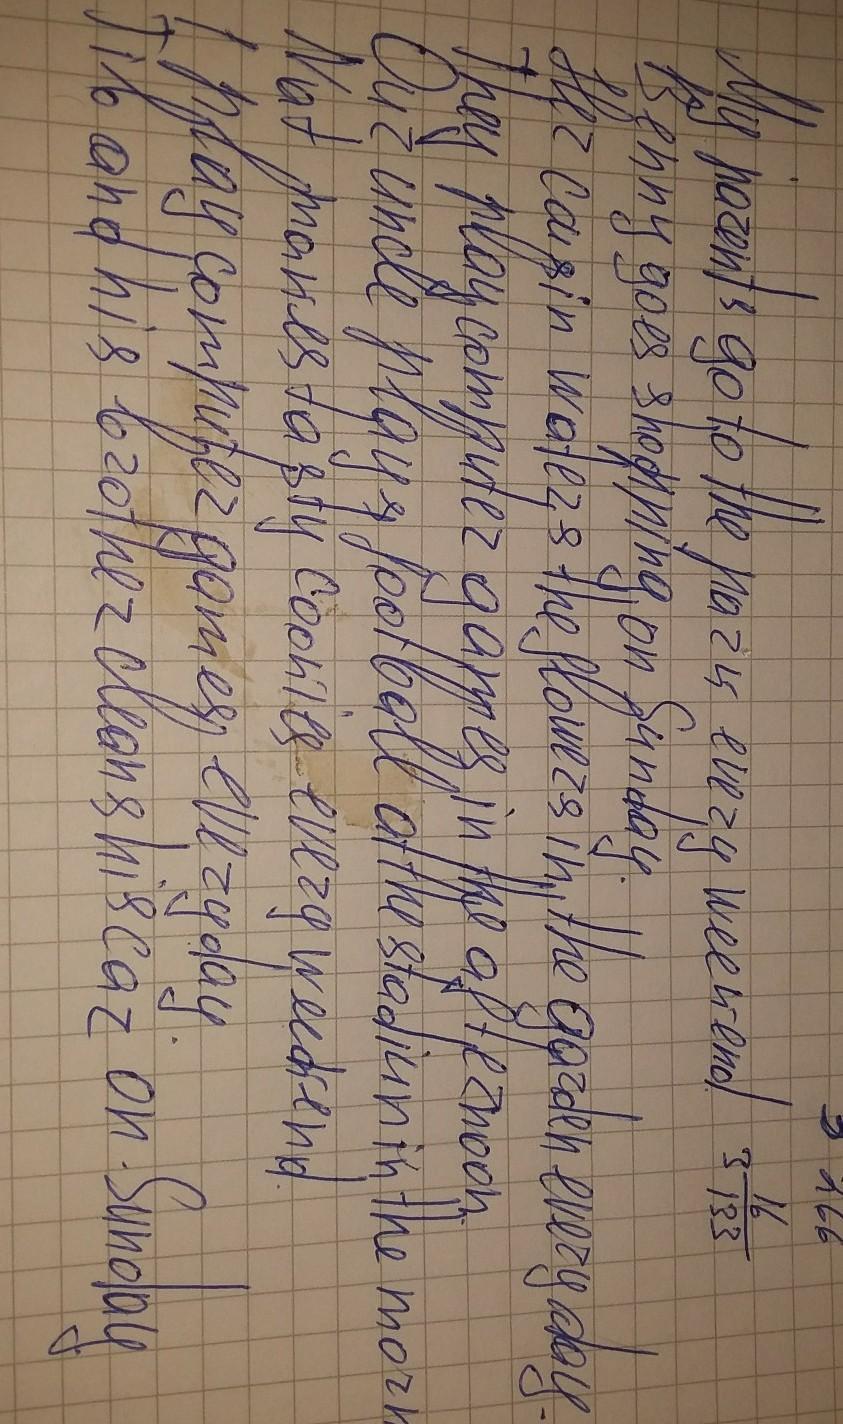 My parents go to the park every weekend
Benny goes shopping on Sunday.
Her cousin waters the flowers in the garden every day.
They play computer games in the afternoon.
Our uncle plays football at the stadium in the morn
Nat makes tasty cookies every weekend.
I play computer games every day.
and his brother cleans his car on Sunday
16
3 133
3 166